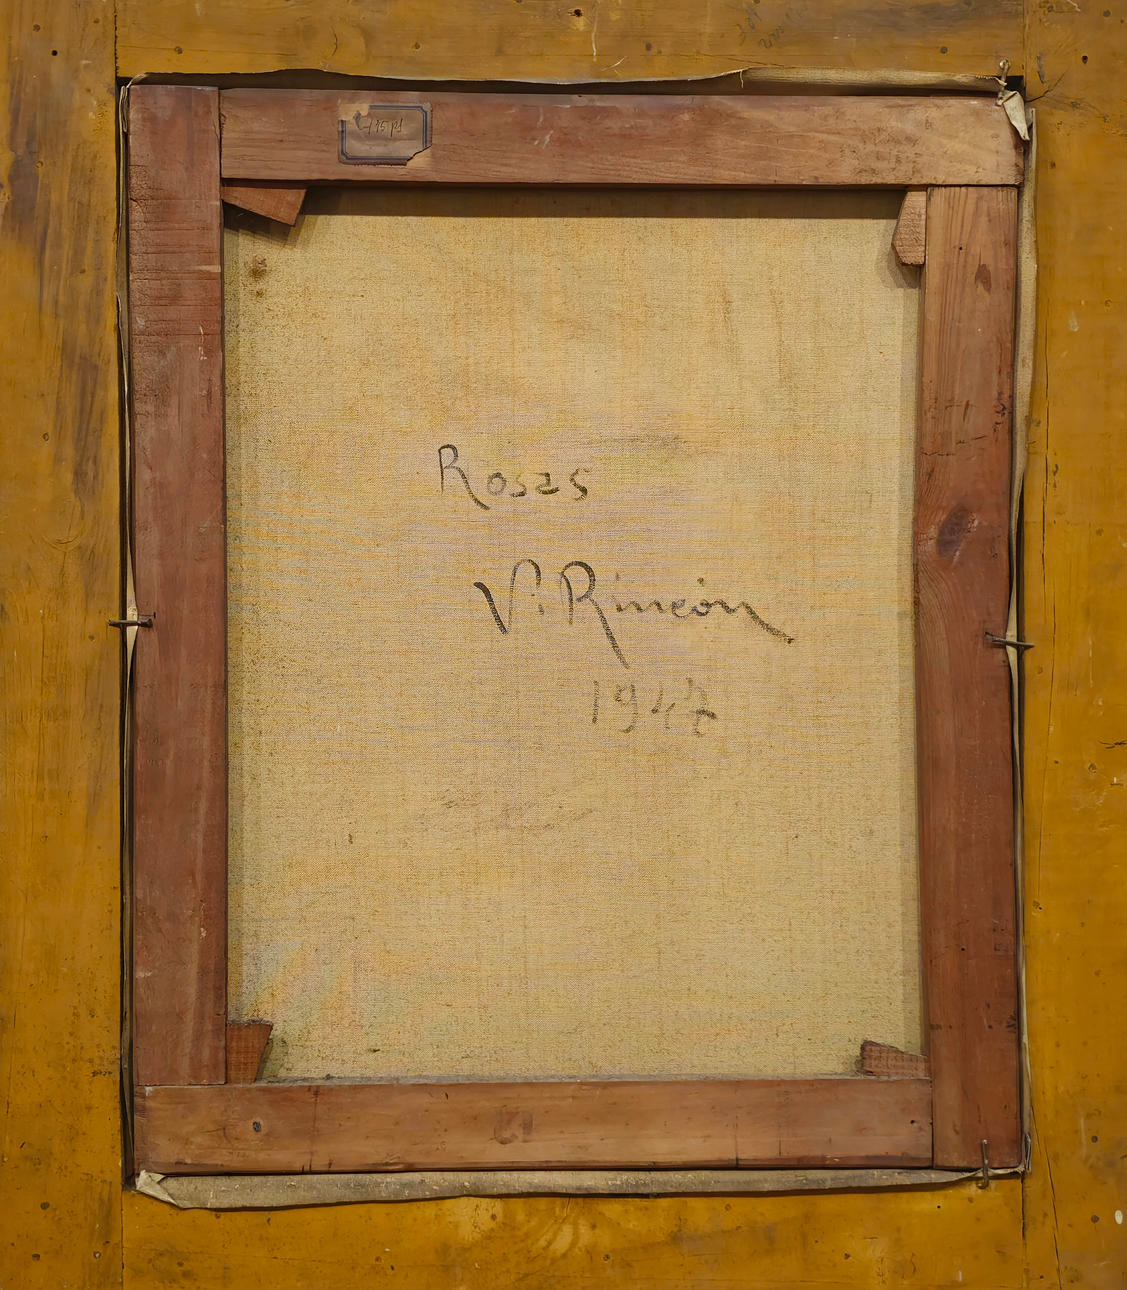 Rosas
V. Rincón
1947